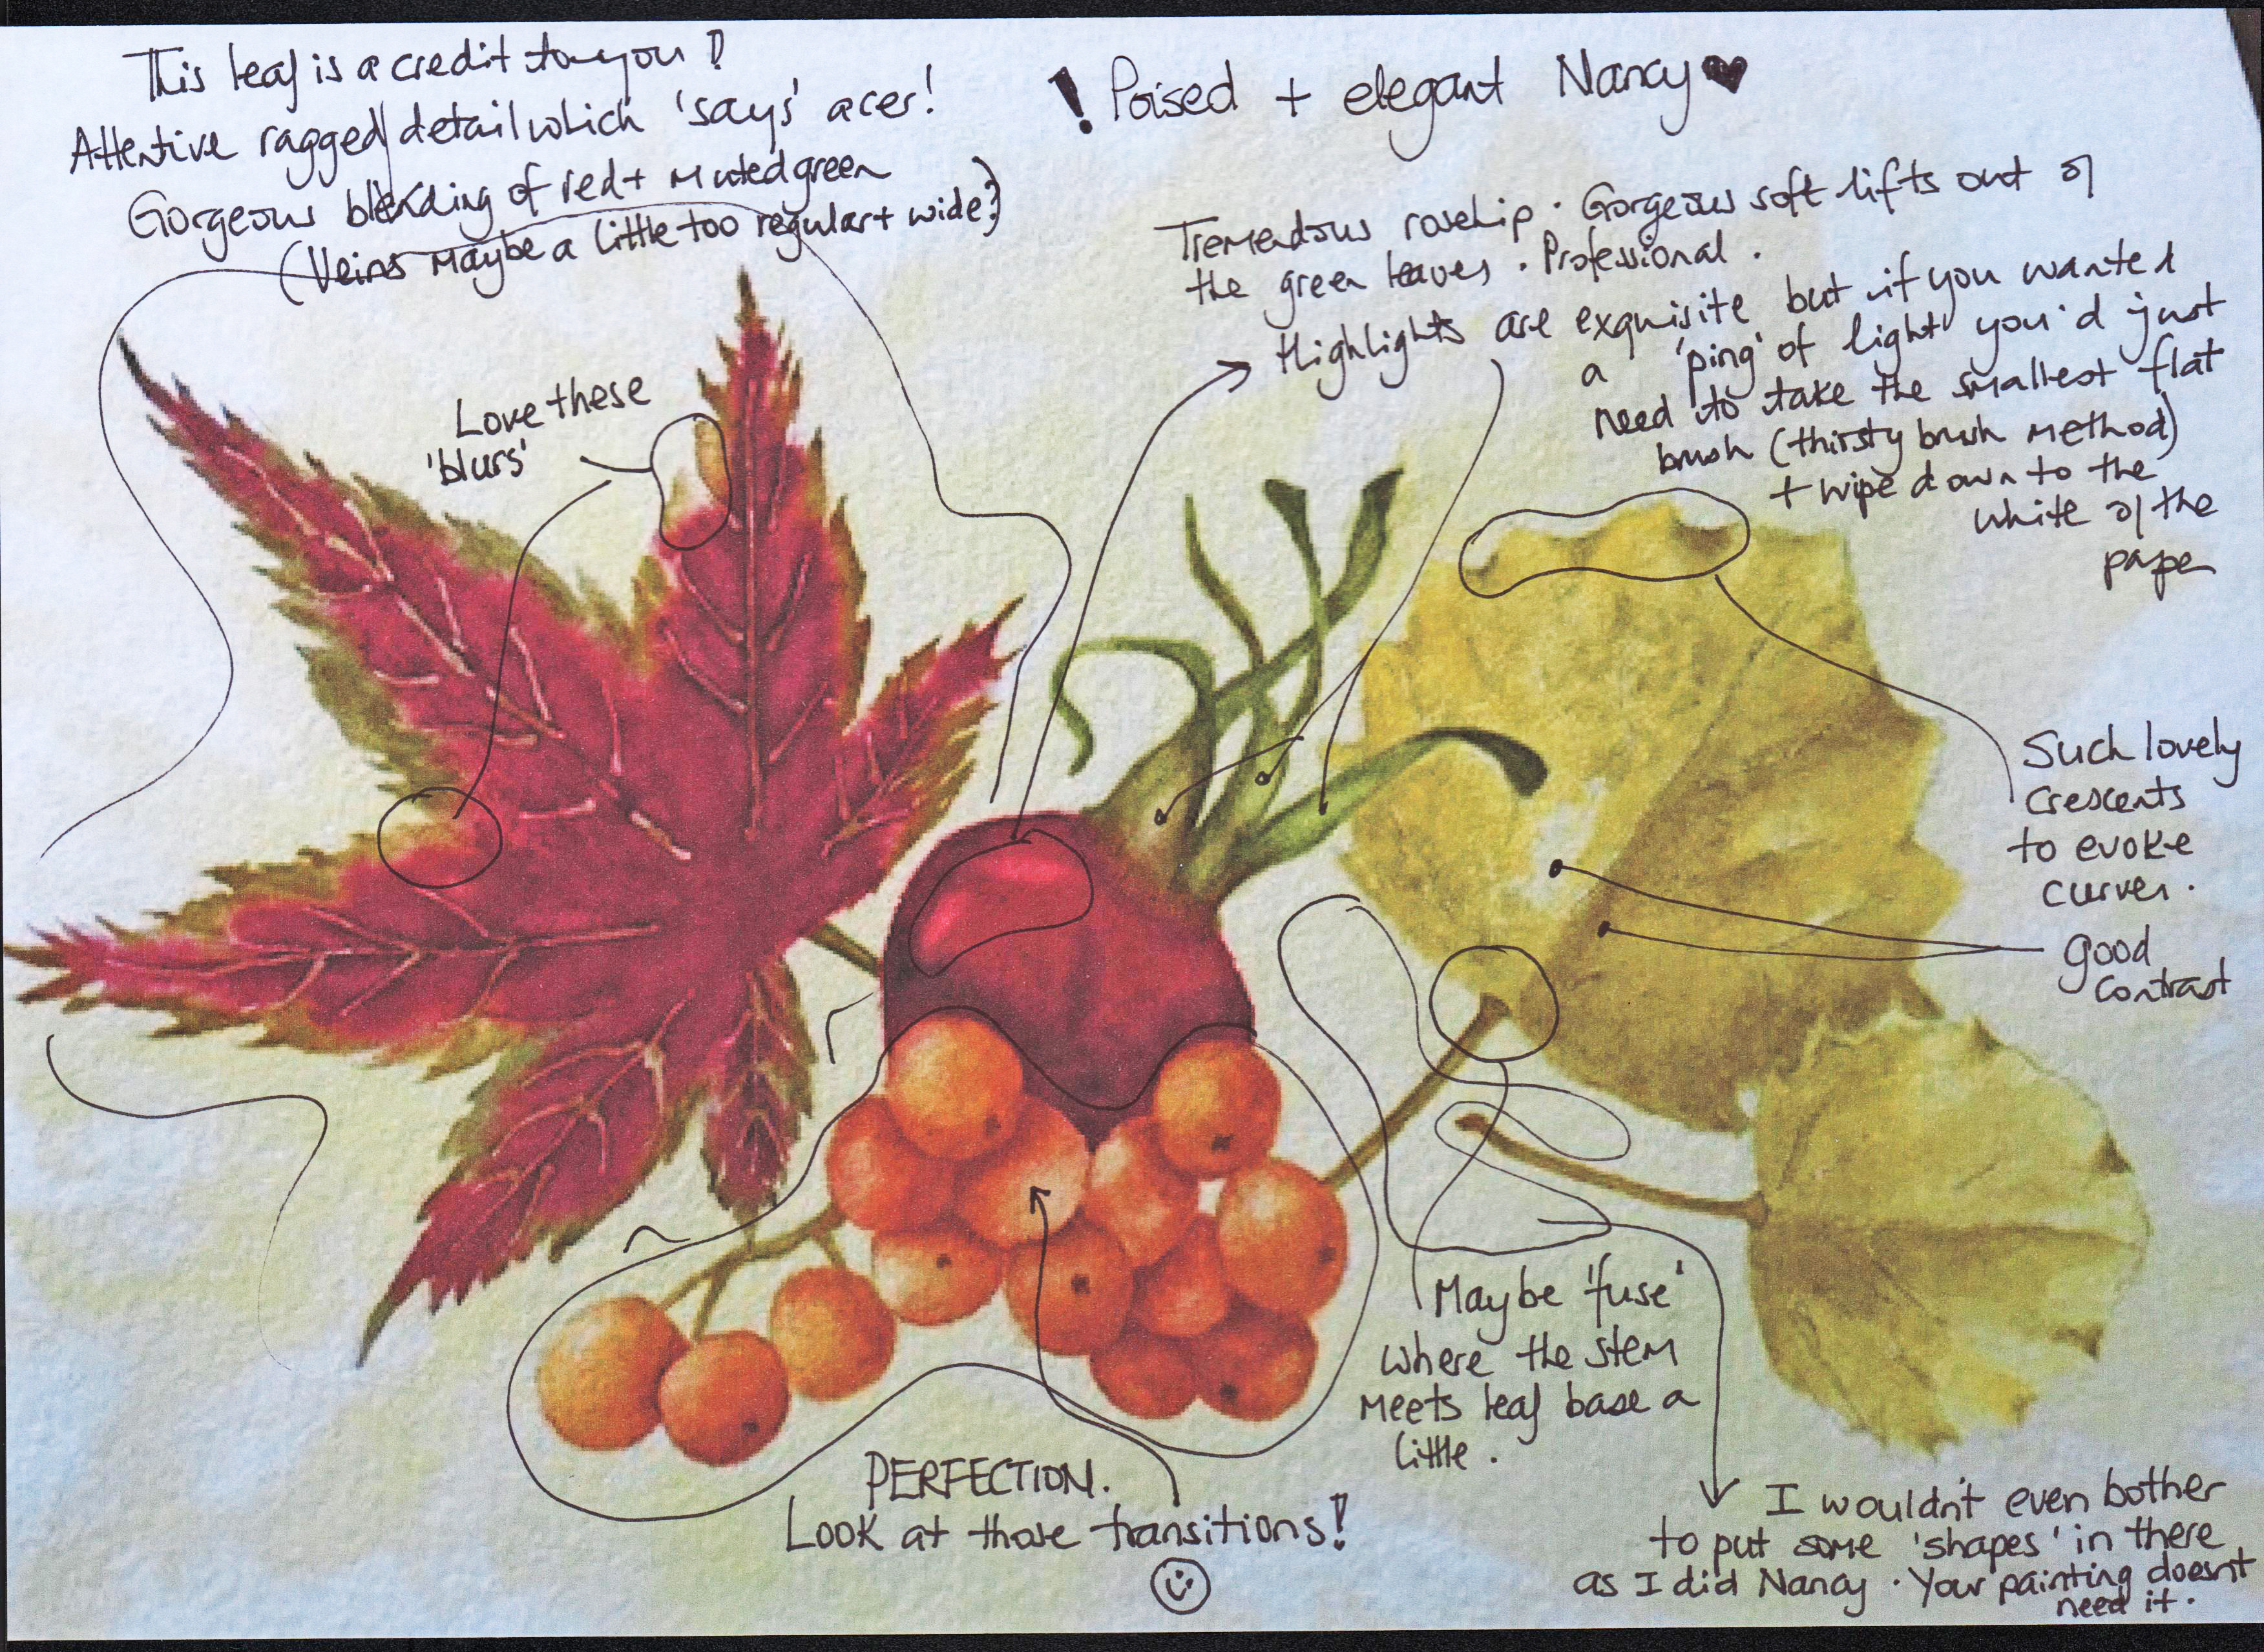 This leaf is a credit to you!
Attentive ragged detail which 'says' acer!
Gorgeous blending of red + muted green
(Veins maybe a little too regular + wide?)
! Poised + elegant Nancy ♥
Tremendous rosehip. Gorgeous soft lifts out of
the green leaves. Professional.
Highlights are exquisite but if you wanted
a 'ping' of light you'd just
need to take the smallest flat
brush (thirsty brush method)
+ wipe down to the
white of the
paper
Love these
'blurs'
Such lovely
crescents
to evoke
curves.
good
contrast
Maybe 'fuse'
where the stem
meets leaf base a
little.
PERFECTION.
Look at those transitions!
I wouldn't even bother
to put some 'shapes' in there
as I did Nancy. Your painting doesn't
need it.